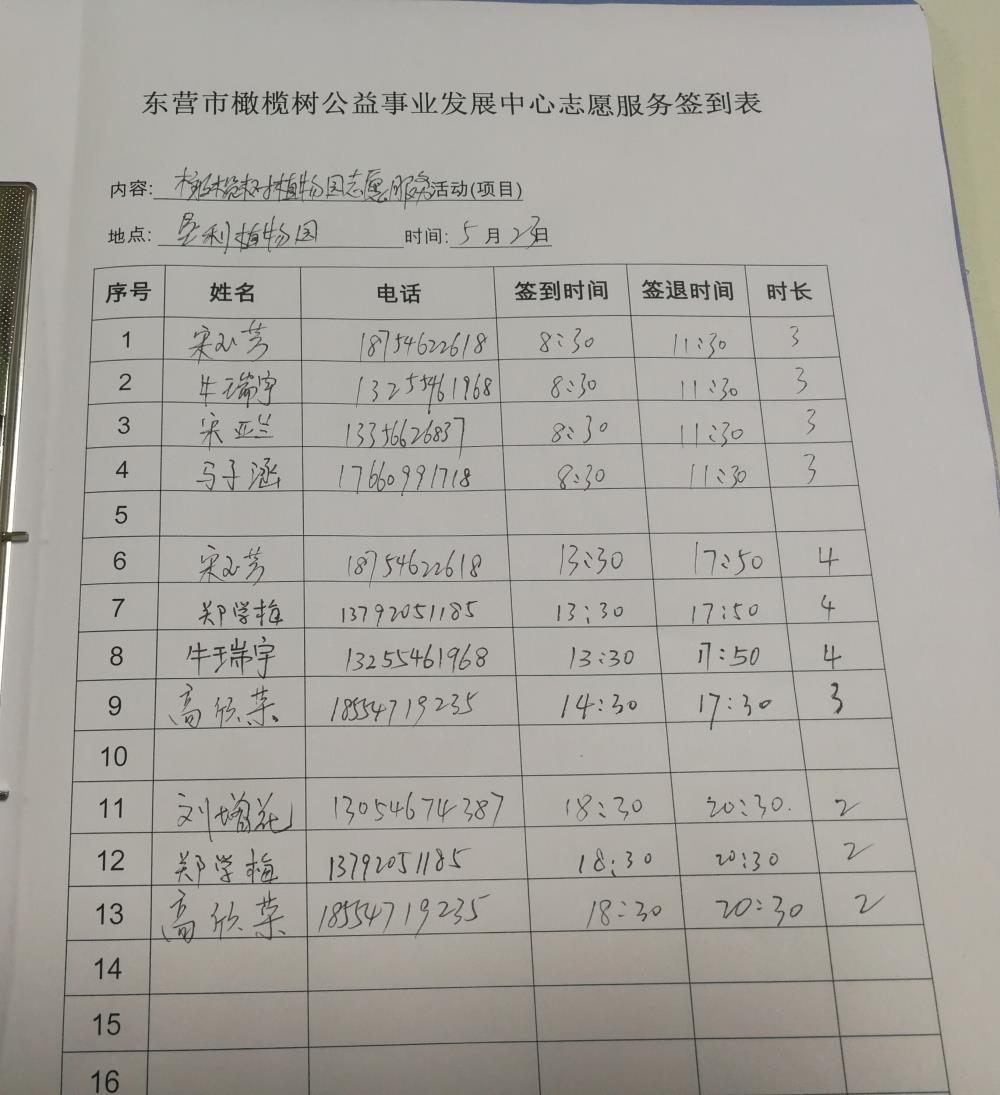 东营市橄榄树公益事业发展中心志愿服务签到表
内容: 橄榄树植物园志愿服务活动(项目)
地点: 垦利植物园 时间: 5月23日
序号 姓名 电话 签到时间 签退时间 时长
1 宋玉芳 18754622618 8:30 11:30 3
2 牛瑞宇 13255461968 8:30 11:30 3
3 宋亚兰 13356626837 8:30 11:30 3
4 马子涵 17660991718 8:30 11:30 3
5
6 宋玉芳 18754622618 13:30 17:50 4
7 郑学梅 13792051185 13:30 17:50 4
8 牛瑞宇 13255461968 13:30 17:50 4
9 高欣荣 18554719235 14:30 17:30 3
10
11 刘增花 13054674387 18:30 20:30. 2
12 郑学梅 13792051185 18:30 20:30 2
13 高欣荣 18554719235 18:30 20:30 2
14
15
16